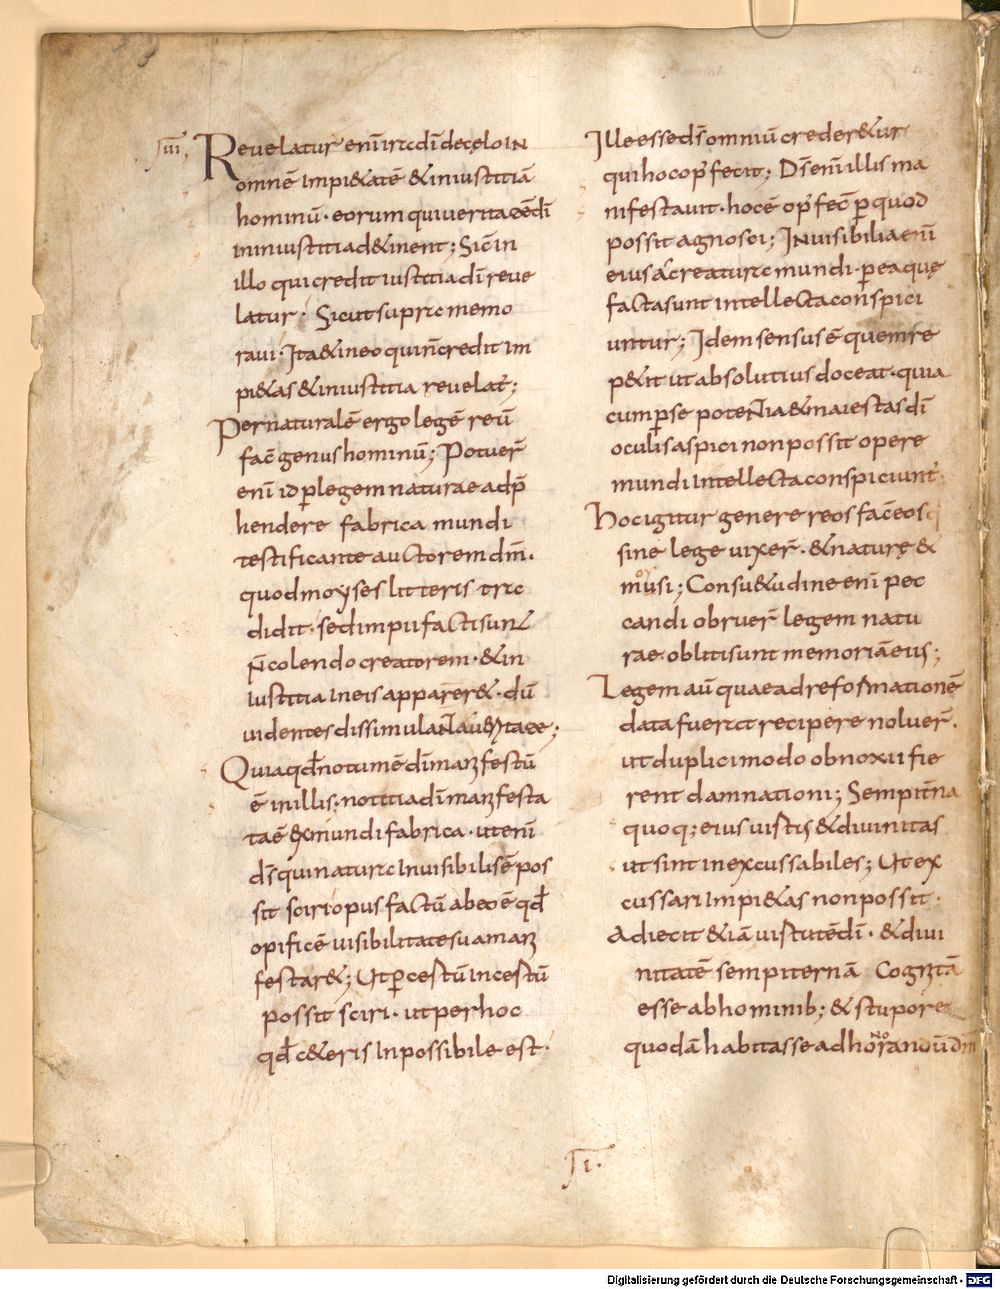 iiii, Reuelatur enī ira dī de cęlo in
omnē impi&atē &iniustitiā
hominū· eorum qui uerita&ēdī
in iniustitia d&inent; Sic̄ in
illo qui credit iustitia dī reue
latur· Sicut supra memo
raui· Ita&in eo qui n̄ credit im
pi&as &iniustitia reuelat̄;
Per naturalē ergo legē reū
fac̄ genus hominū; Potuer̄
enī id ꝑ legem naturae adp̄
hendere fabrica mundi
testificante auctorem dm̄·
quod moyses litteris tra
didit· sed impii facti sunt
n̄ colendo creatorem· &in
iustitia in eis apparer&· dū
uidentes dissimulant a ueritate;
Quia qd̄ notum ē dī manifestū
ē in illis· notitia dī manifesta
ta ē ex mundi fabrica· ut enī
ds̄ qui natura inuisibilis ē pos
sit sciri opus factū ab eo ē qd̄
opificē uisibilitate sua mani
festar&; Ut ꝑ certū incertū
possit sciri· ut per hoc
qd̄ c&eris inpossibile est·
Ille esse ds̄ omniū creder&ur
qui hoc op' fecit; Ds̄ enī illis ma
nifestauit· hoc ē op' fec̄ ꝑ quod
possit agnosci; Inuisibilia enī
eius a creatura mundi· ꝑ ea quę
facta sunt intellecta conspici
untur; Idem sensus ē quem re
p&it ut absolutius doceat· quia
cum ꝑ se potentia &maiestas dī
oculis aspici non possit opere
mundi intellecta conspiciunt̄·
Hoc igitur genere reos fac̄ eos q
sine lege uixer̄· &naturę &
moysi; Consu&udine enī pec
candi obruer̄ legem natu
rae obliti sunt memoriā eius;
Legem aū quae ad reformationē
data fuerat recipere noluer̄·
ut duplici modo obnoxii fie
rent damnationi; Sempit̄na
quoq; eius uirtus &diuinitas
ut sint inexcussabiles; Ut ex
cussari impi&as non possit·
Adiecit &iā uirtutē dī· &diui
nitatē sempiternā Cognitā
esse ab hominib; &stupore
quodā habitasse ad honorandū dm̄
II·
Digitalisierung gefördert durch die Deutsche Forschungsgemeinschaft - DFG